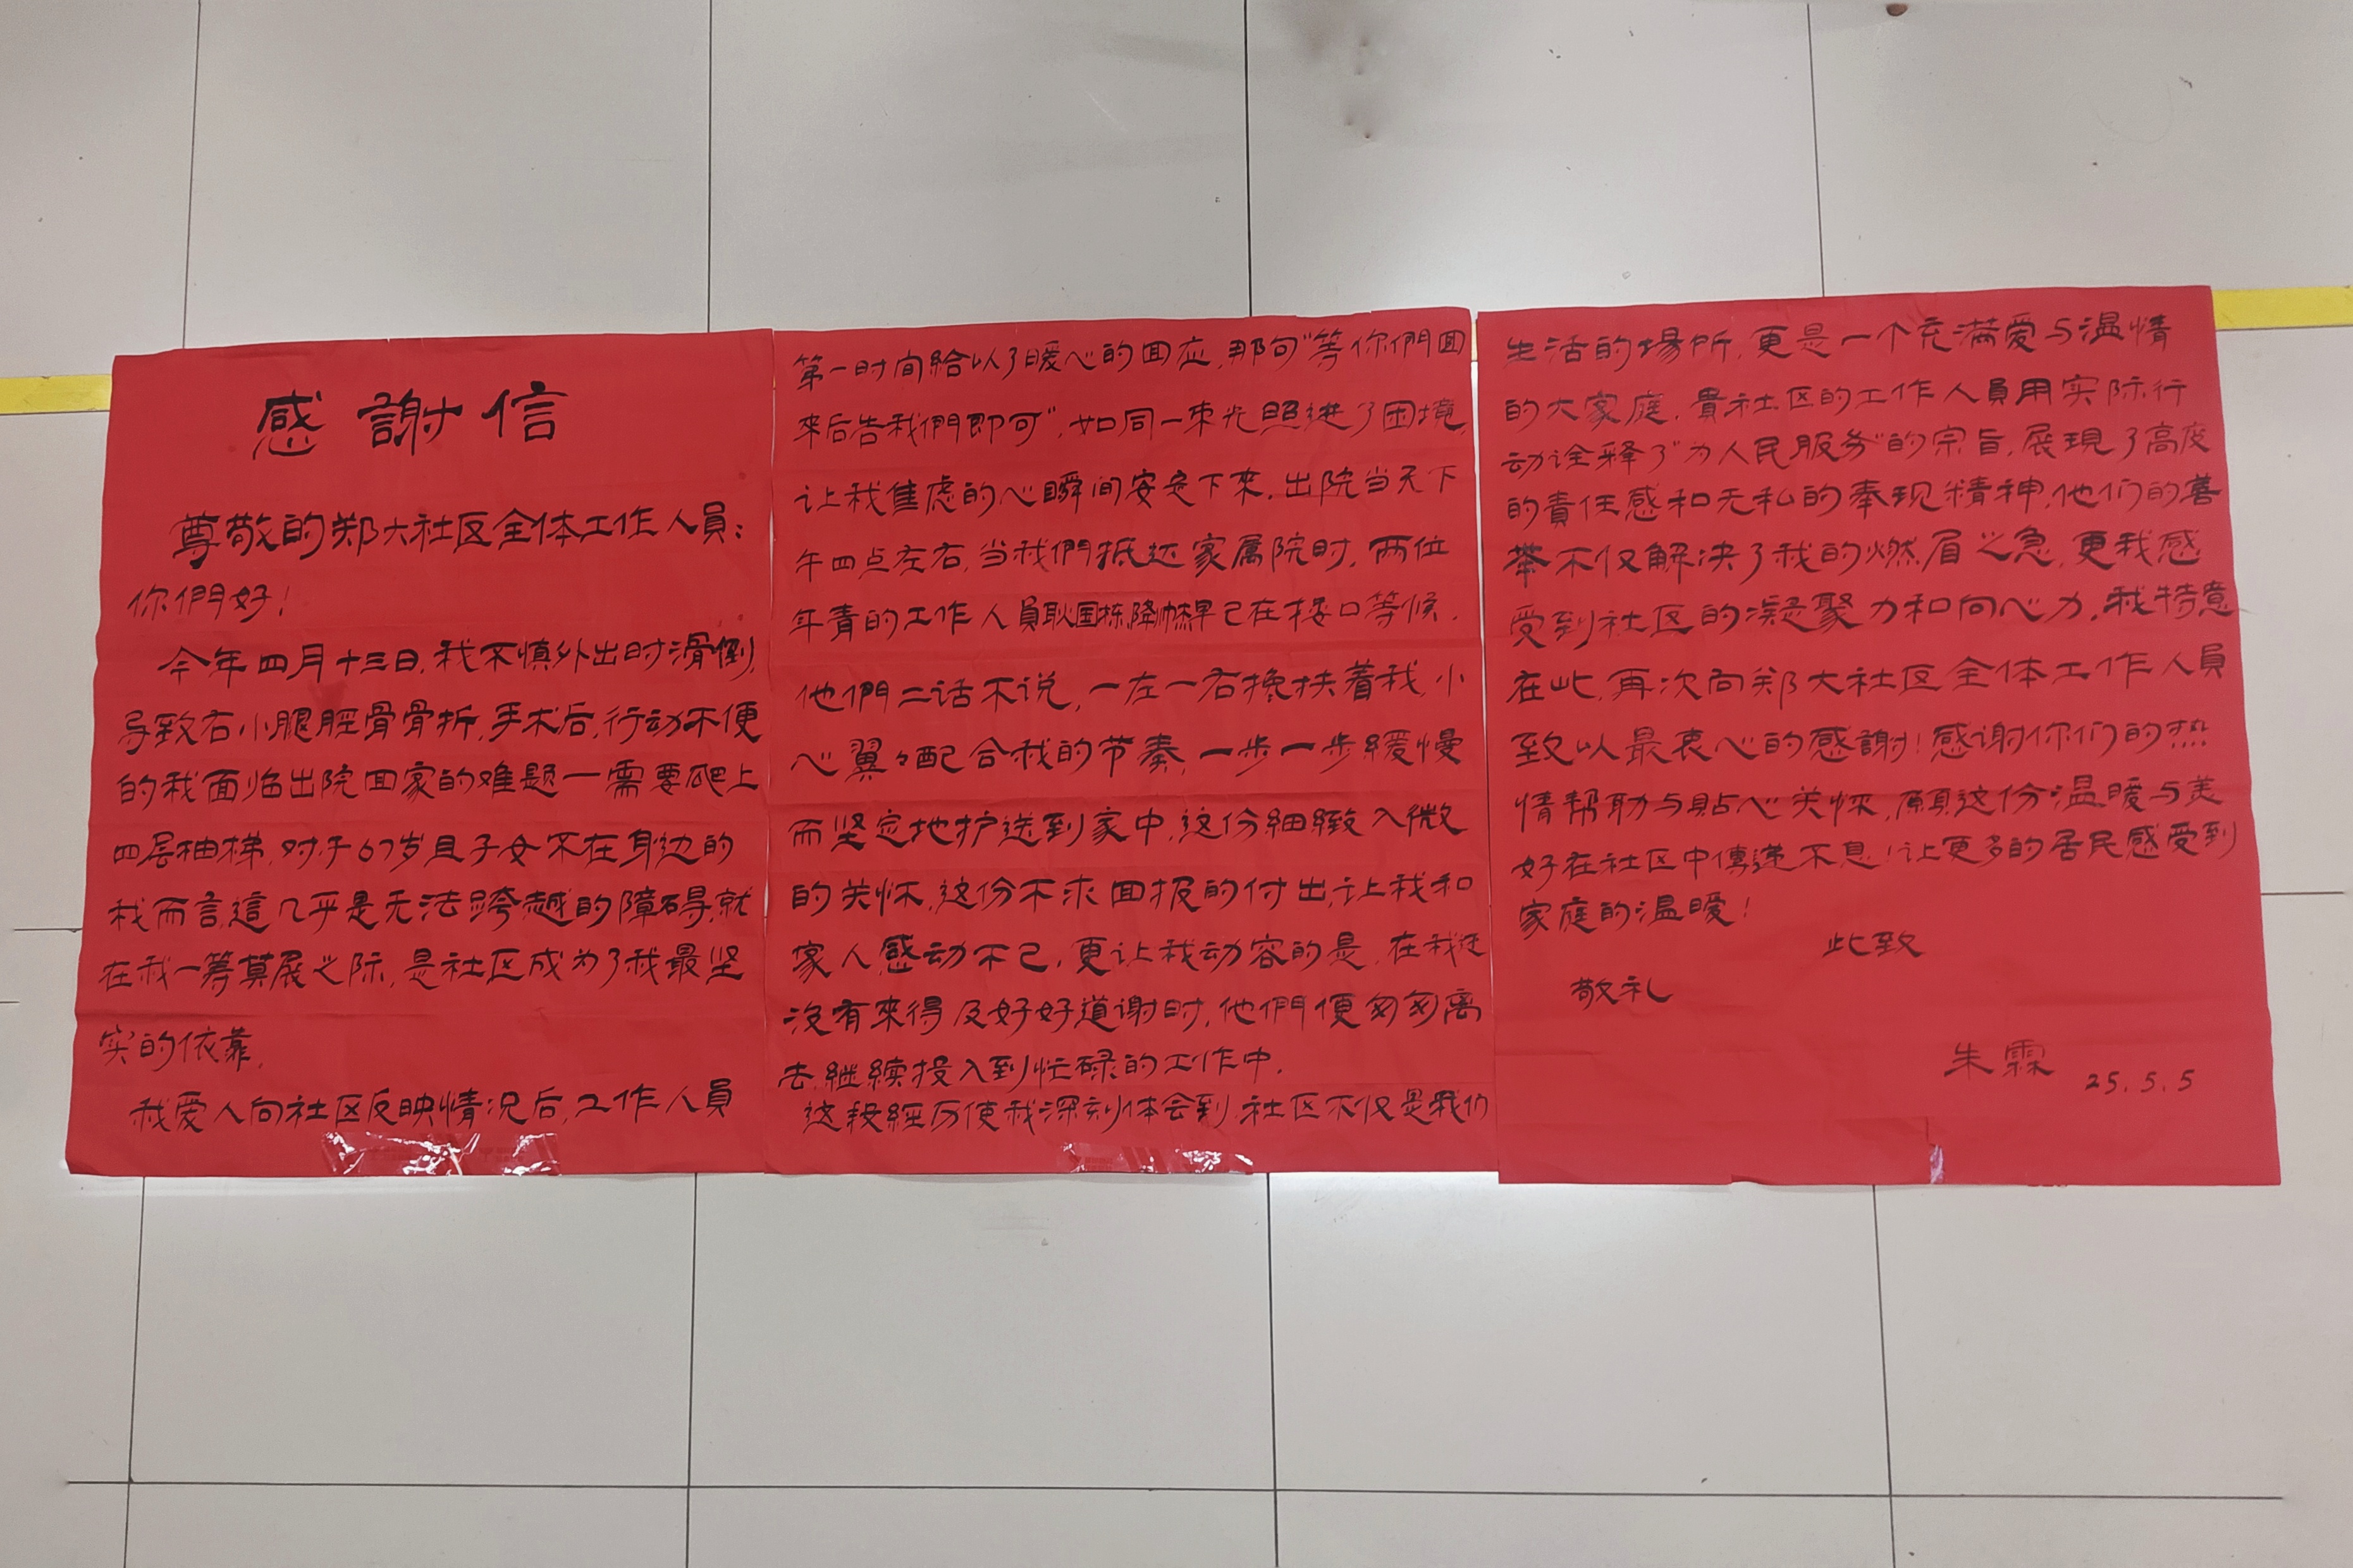 感謝信
尊敬的郑大社区全体工作人員：
你們好！
今年四月十三日，我不慎外出时滑倒，
导致右小腿胫骨骨折，手术后，行动不便
的我面临出院回家的难题一需要爬上
四层抽梯，对于67岁且子女不在身边的
我而言，這几乎是无法跨越的障碍，就
在我一筹莫展之际，是社区成为了我最坚
实的依靠，
我爱人向社区反映情况后，工作人員
第一时间給以了暖心的回应，那句"等你們回
來后告我們即可"，如同一束光照进了困境，
让我焦虑的心瞬间安定下來，出院当天下
午四点左右，当我們抵达家属院时，两位
年青的工作人員耿国栋，降帅杰早已在楼口等候，
他們二话不说，一左一右搀扶着我，小
心翼々配合我的节奏，一步一步緩慢
而坚定地护送到家中，这份細緻入微
的关怀，这份不求回报的付出，让我和
家人感动不已，更让我动容的是，在我还
没有來得及好好道谢时，他們便匆匆离
去，継续投入到忙碌的工作中，
这段經历使我深刻体会到，社区不仅是我们
生活的場所，更是一个充满爱与温情
的大家庭，貴社区的工作人員用实际行
动诠释了"为人民服务"的宗旨，展現了高度
的責任感和无私的奉现精神，他们的善
举不仅解决了我的燃眉之急，更我感
受到社区的凝聚力和向心力，我特意
在此，再次向郑大社区全体工作人員
致以最衷心的感謝！感谢你们的热
情帮助与贴心关怀，願这份温暖与美
好在社区中傳递不息！让更多的居民感受到
家庭的温暖！
此致
敬礼
朱霖
25.5.5